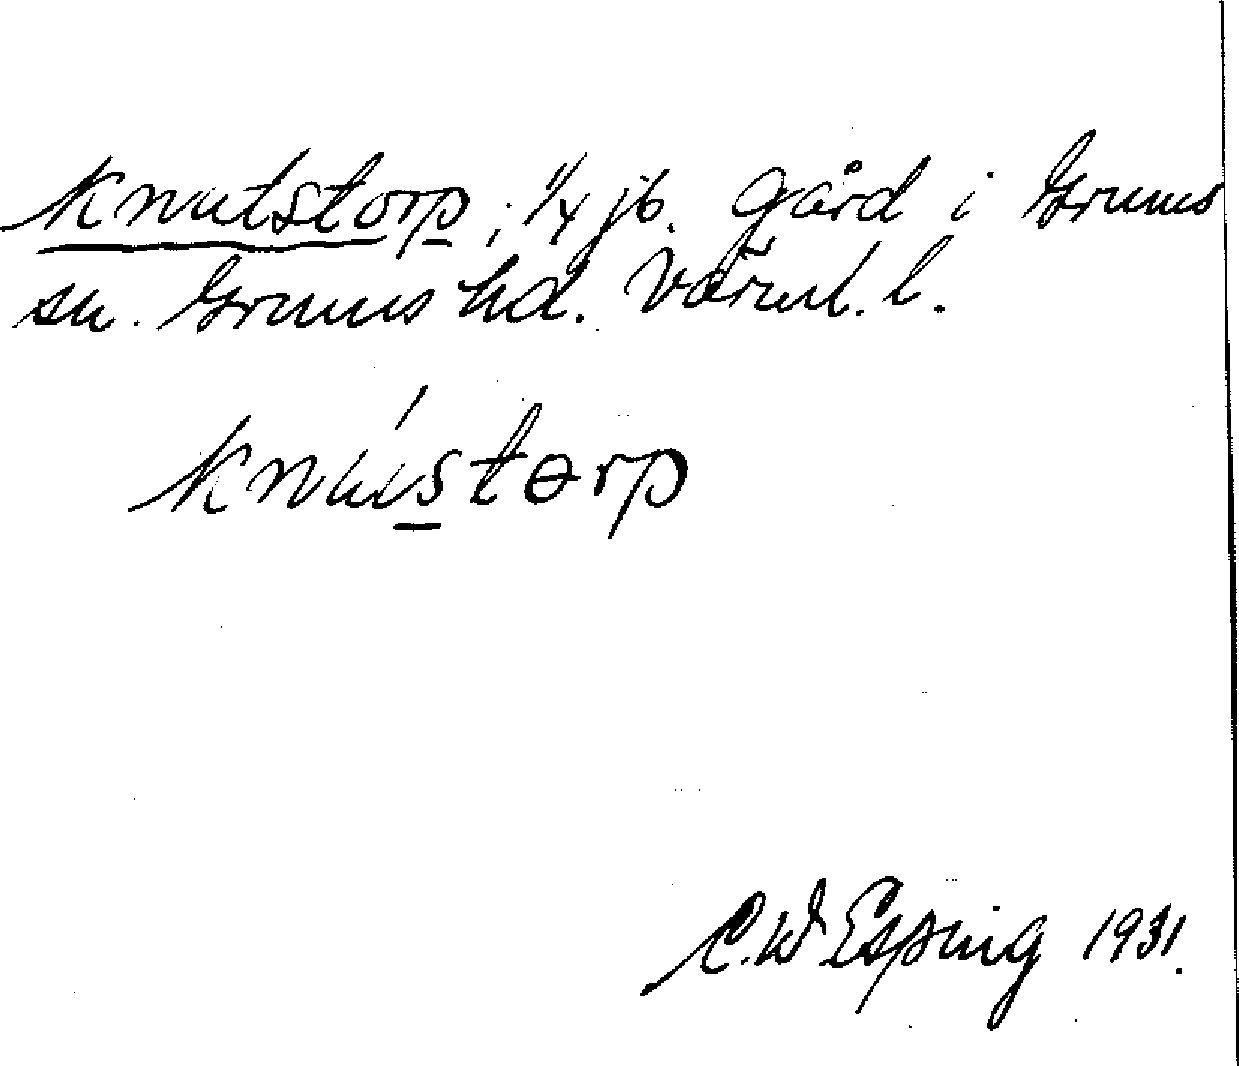 Knutstorp, 1/4 jb. gård i Grums
sn. Grums hd. Värml. l.
Knústorp
C.W Esping 1931.